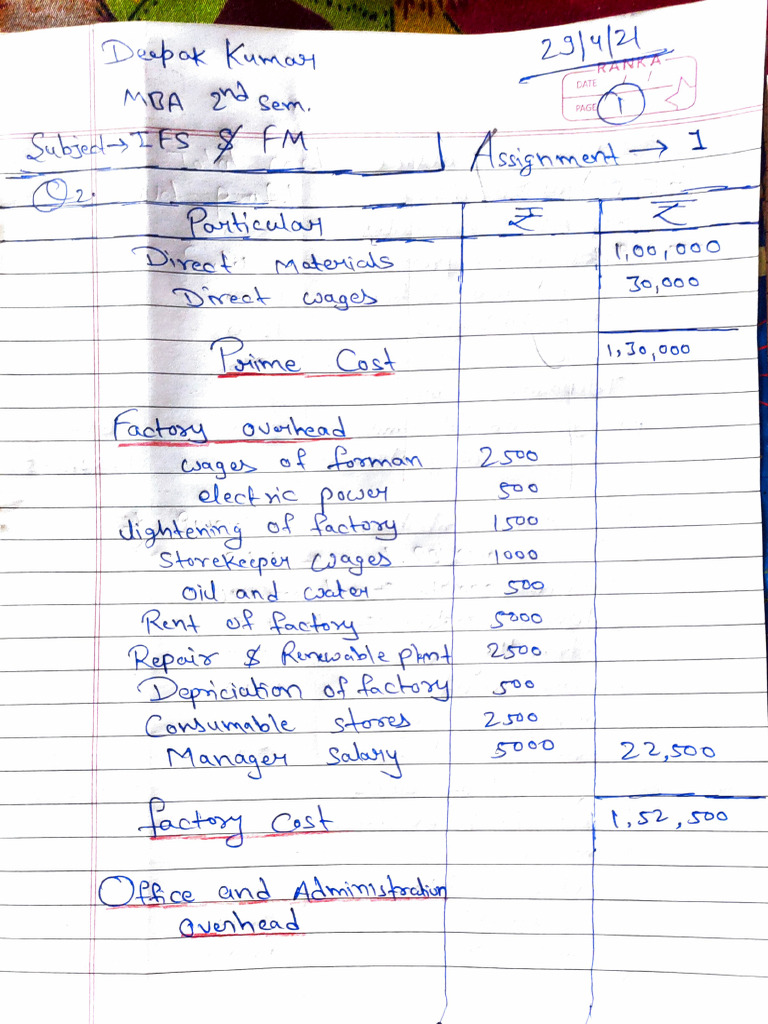 Deepak Kumar
29/4/21
MBA 2nd Sem.
RANKA
DATE / /
PAGE 1
Subject → IFS $ FM
Assignment → 1
Q 2.
Particular ₹ ₹
Direct Materials 1,00,000
Direct wages 30,000
Prime Cost 1,30,000
Factory overhead
wages of forman 2500
electric power 500
lightening of factory 1500
Storekeeper wages 1000
oil and water 500
Rent of factory 5000
Repair $ Renewable plant 2500
Depriciation of factory 500
Consumable stores 2500
Manager Salary 5000 22,500
factory Cost 1,52,500
Office and Administration
overhead